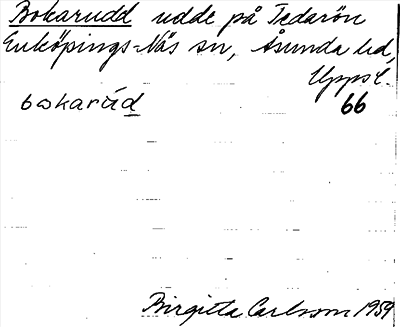 Bokarudd udde på Tedarön
Enköpings-Näs sn, Åsunda hd,
Upps l.
bωkarúd 66
Birgitta Carlsson 1959